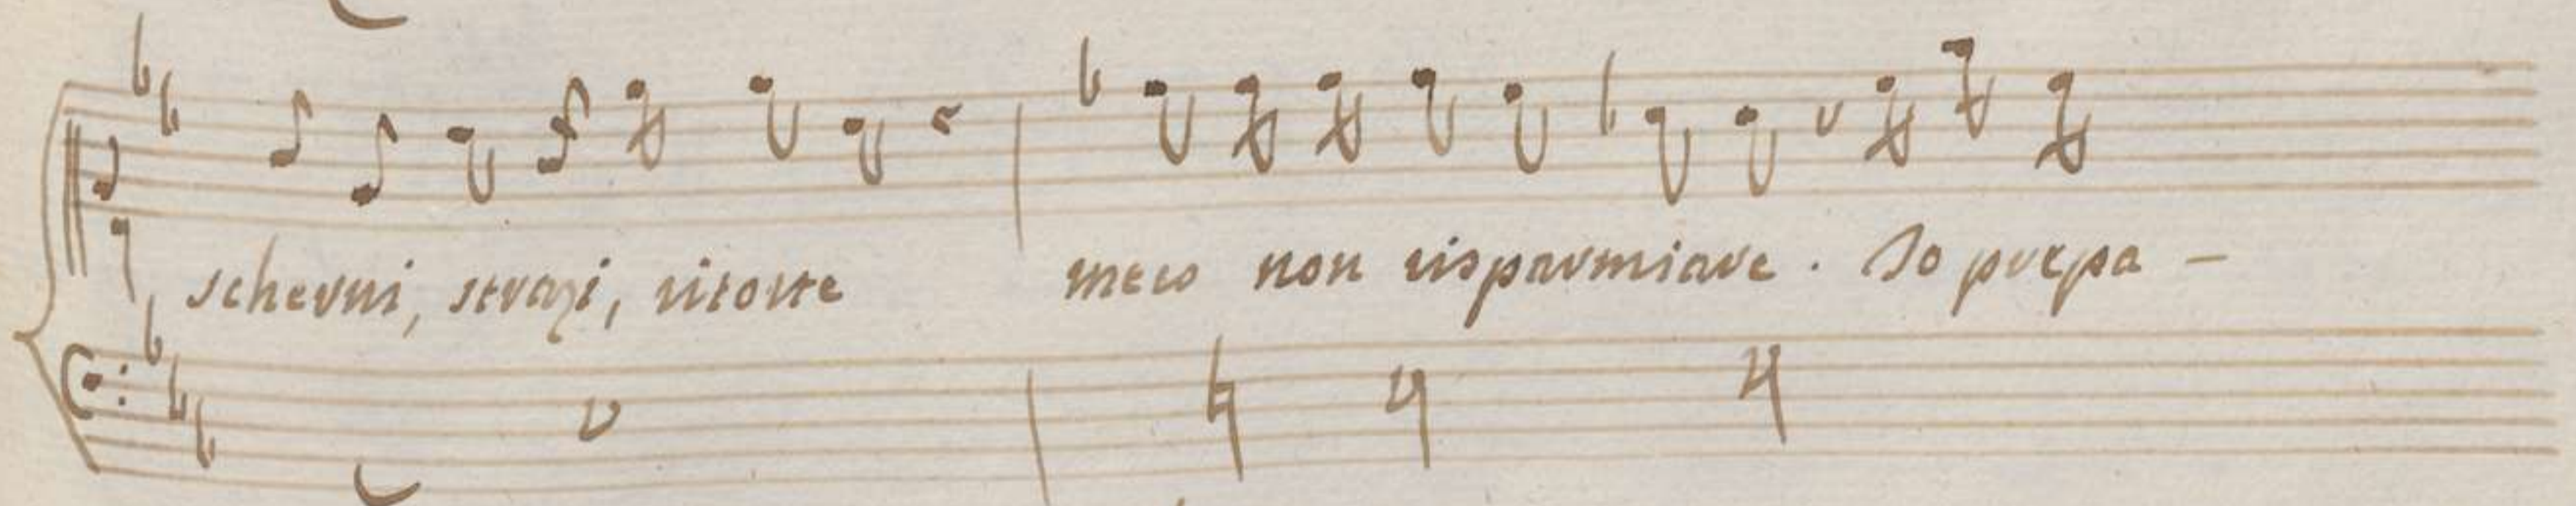 scherni, strazi, ritorte meco non risparmiare. Io prepa -